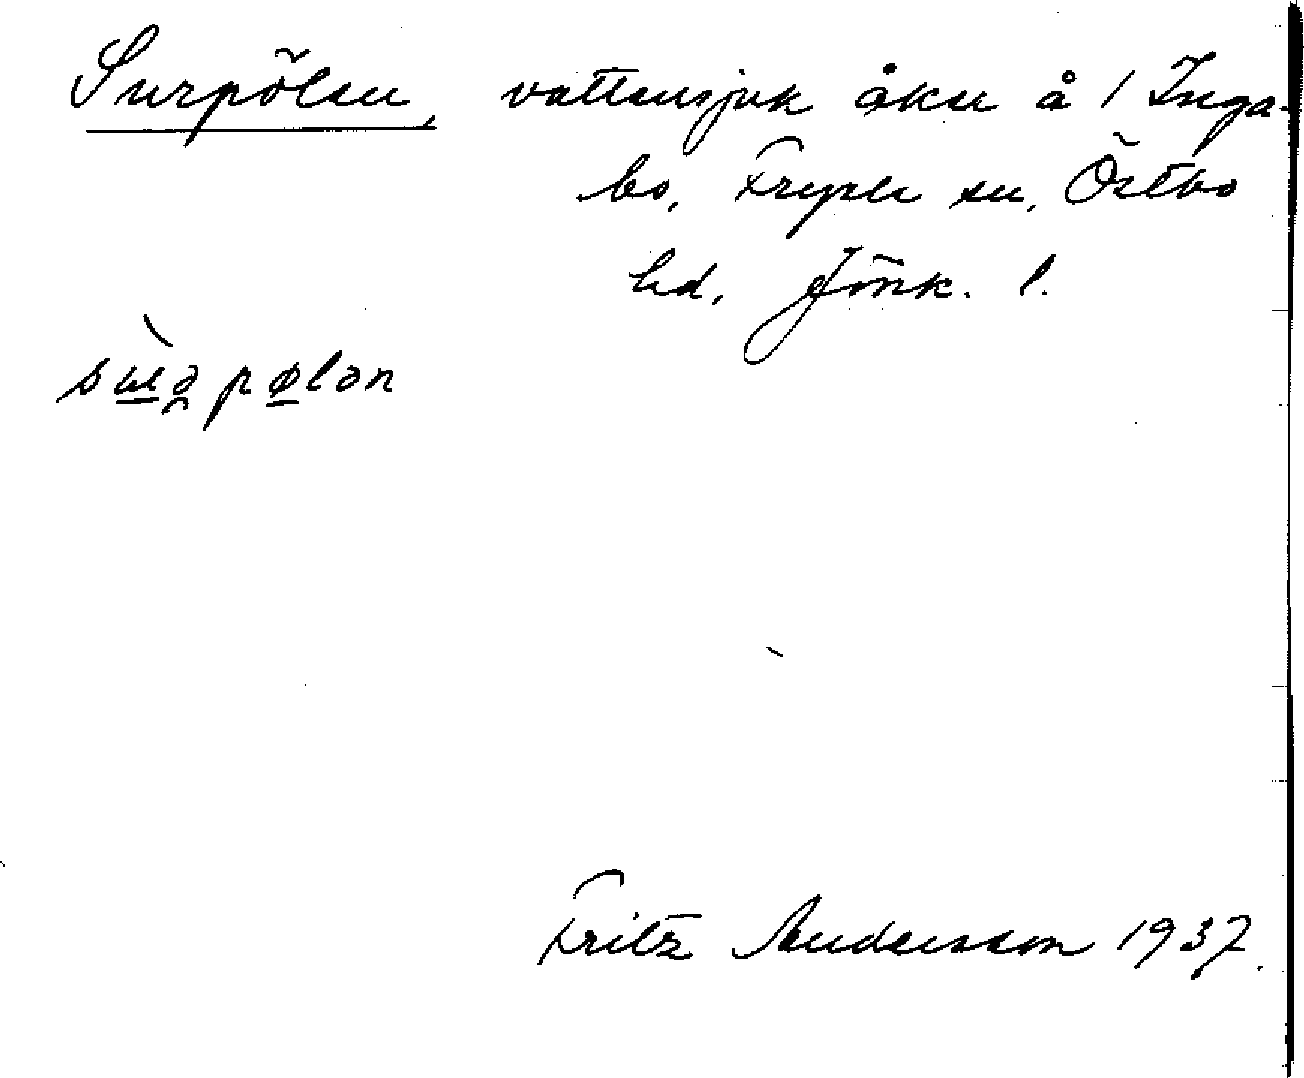 Surpölen, vattensjuk åker å 1 Inga-
bo, Fryele sn, Östbo
hd, Jönk. l.
sɯ̀ə̯pølən
Fritz Andersson 1937.